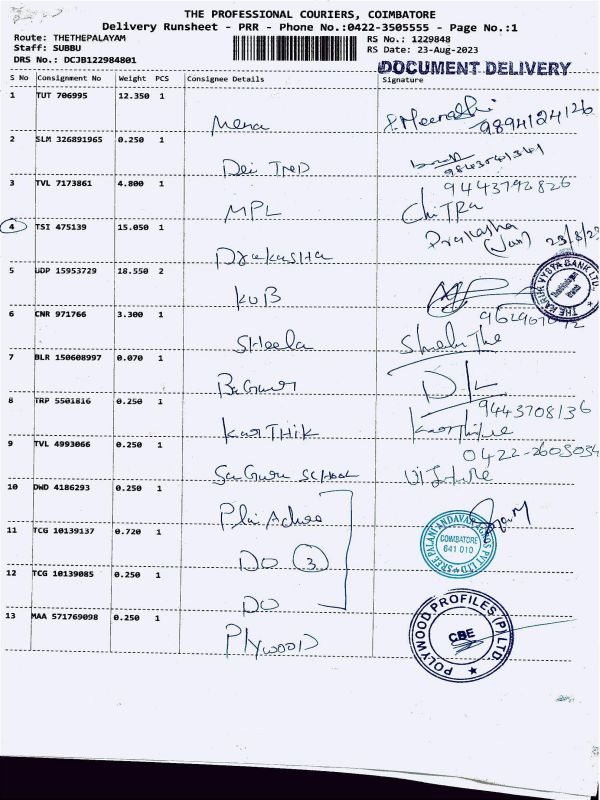 THE PROFESSIONAL COURIERS, COIMBATORE
Delivery Runsheet - PRR - Phone No.:0422-3505555 - Page No.:1
Route: THETHEPALAYAM RS No.: 1229848
Staff: SUBBU RS Date: 23-Aug-2023
DRS No.: DCJB122984801 DOCUMENT DELIVERY
S No Consignment No Weight PCS Consignee Details Signature
1 TUT 706995 12.350 1
Mena 9894124126
2 SLM 326891965 0.250 1
9843741341
3 TVL 7173861 4.800 1 9443792826
MPL ChiTRa
4 TSI 475139 15.050 1 Prakasha
PrakasHa
5 UDP 15953729 18.550 2
KUB
THE KARUR VYSYA BANK LTD.
6 CNR 971766 3.300 1
SHeela
7 BLR 150608997 0.070 1
8 TRP 5501816 0.250 1 9443708136
KarTHiK
9 TVL 4993066 0.250 1 0422-2605034
SaGuru SCHOOL
10 DWD 4186293 0.250 1
11 TCG 10139137 0.720 1
DO 3
COIMBATORE
641 010
12 TCG 10139085 0.250 1
DO
13 MAA 571769098 0.250 1
PlYWOOD
POLYWOOD PROFILES (P) LTD
CBE